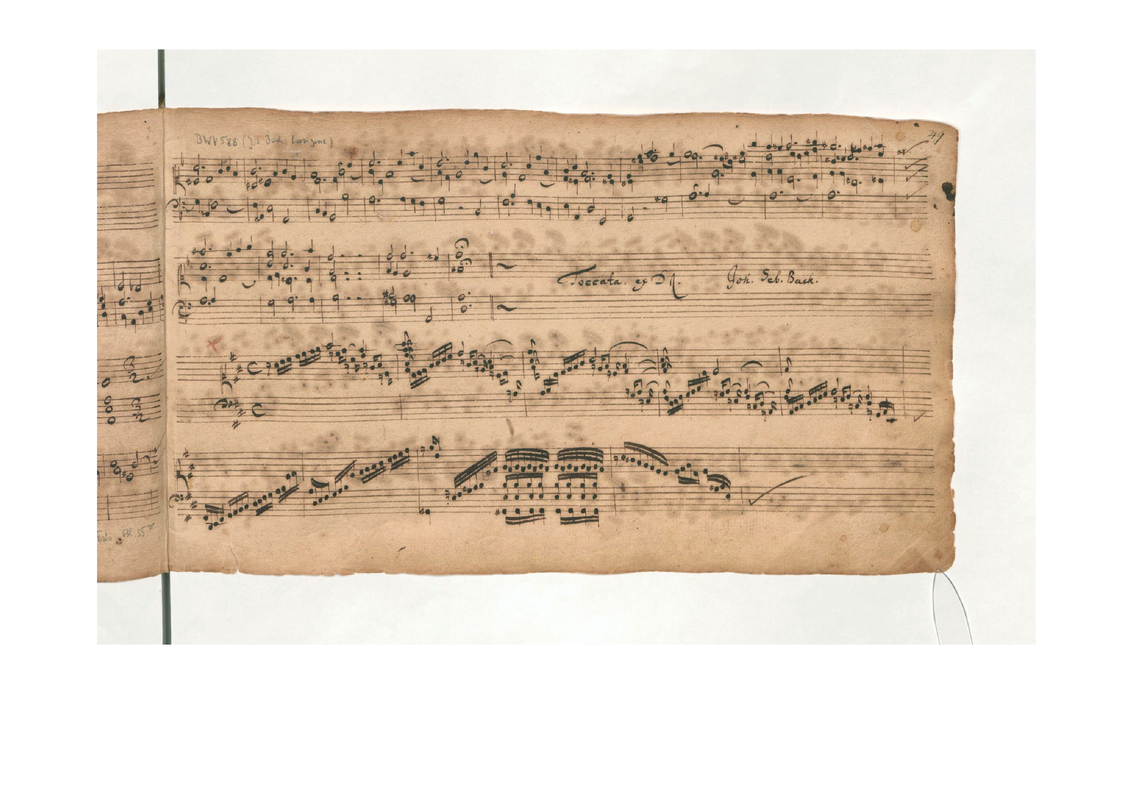 BWV 588 (J. S. Bach: Canzone)
Toccata. ex D♮. Joh. Seb. Bach.